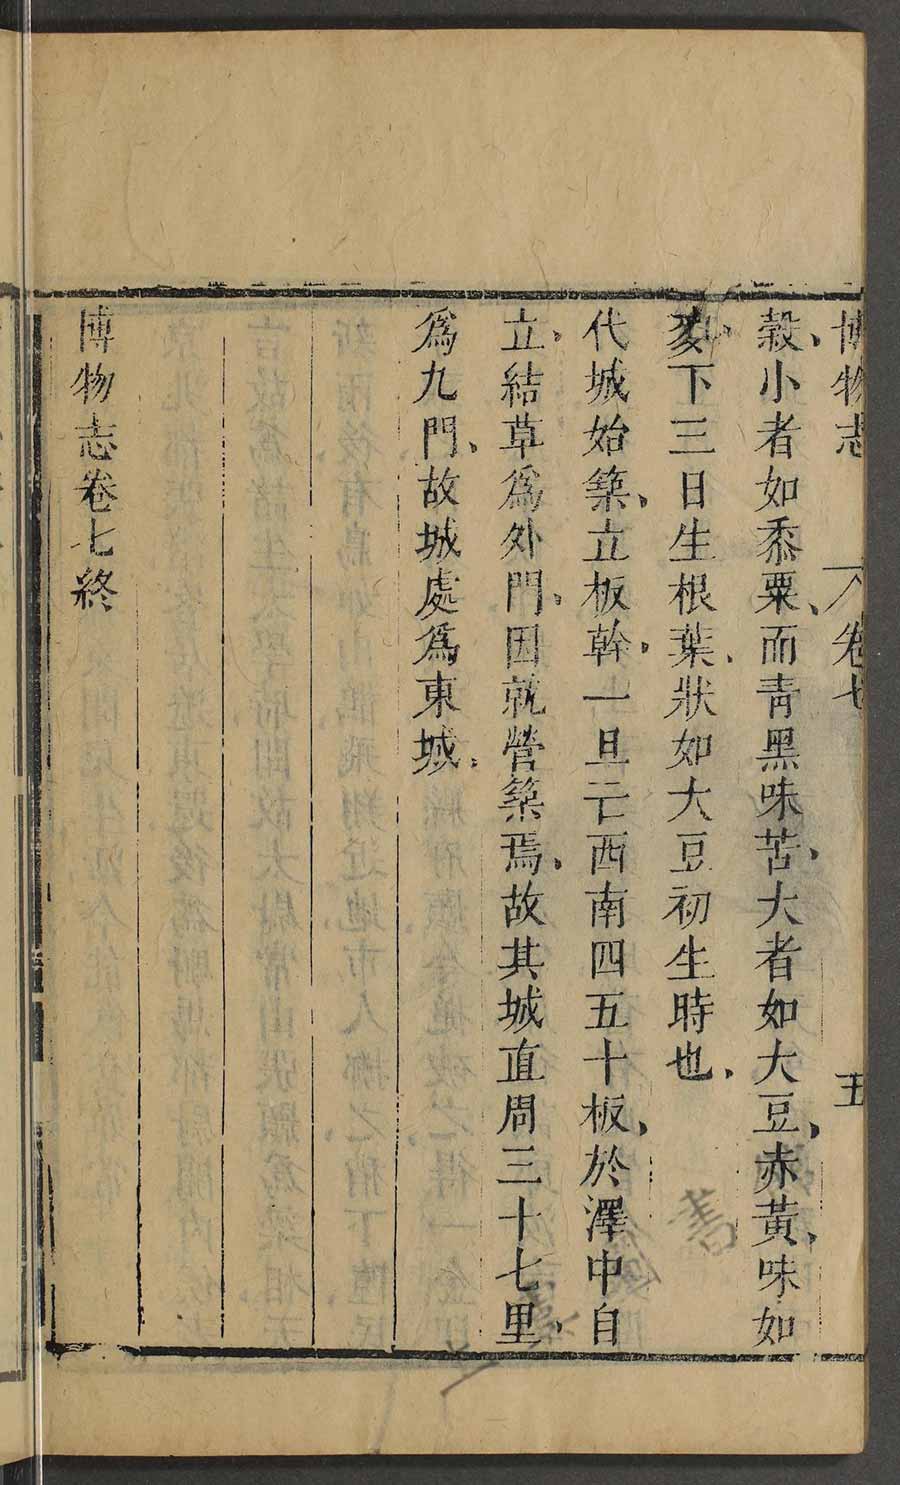 博物志 卷七 五
穀、小者如黍粟、而青黑味苦、大者如大豆、赤黃、味如
麥、下三日生根葉、狀如大豆初生時也、
代城始築、立板幹、一旦亡西南四五十板、於澤中自
立、結草爲外門、因就營築焉、故其城直周三十七里、
爲九門、故城處爲東城、
博物志卷七終